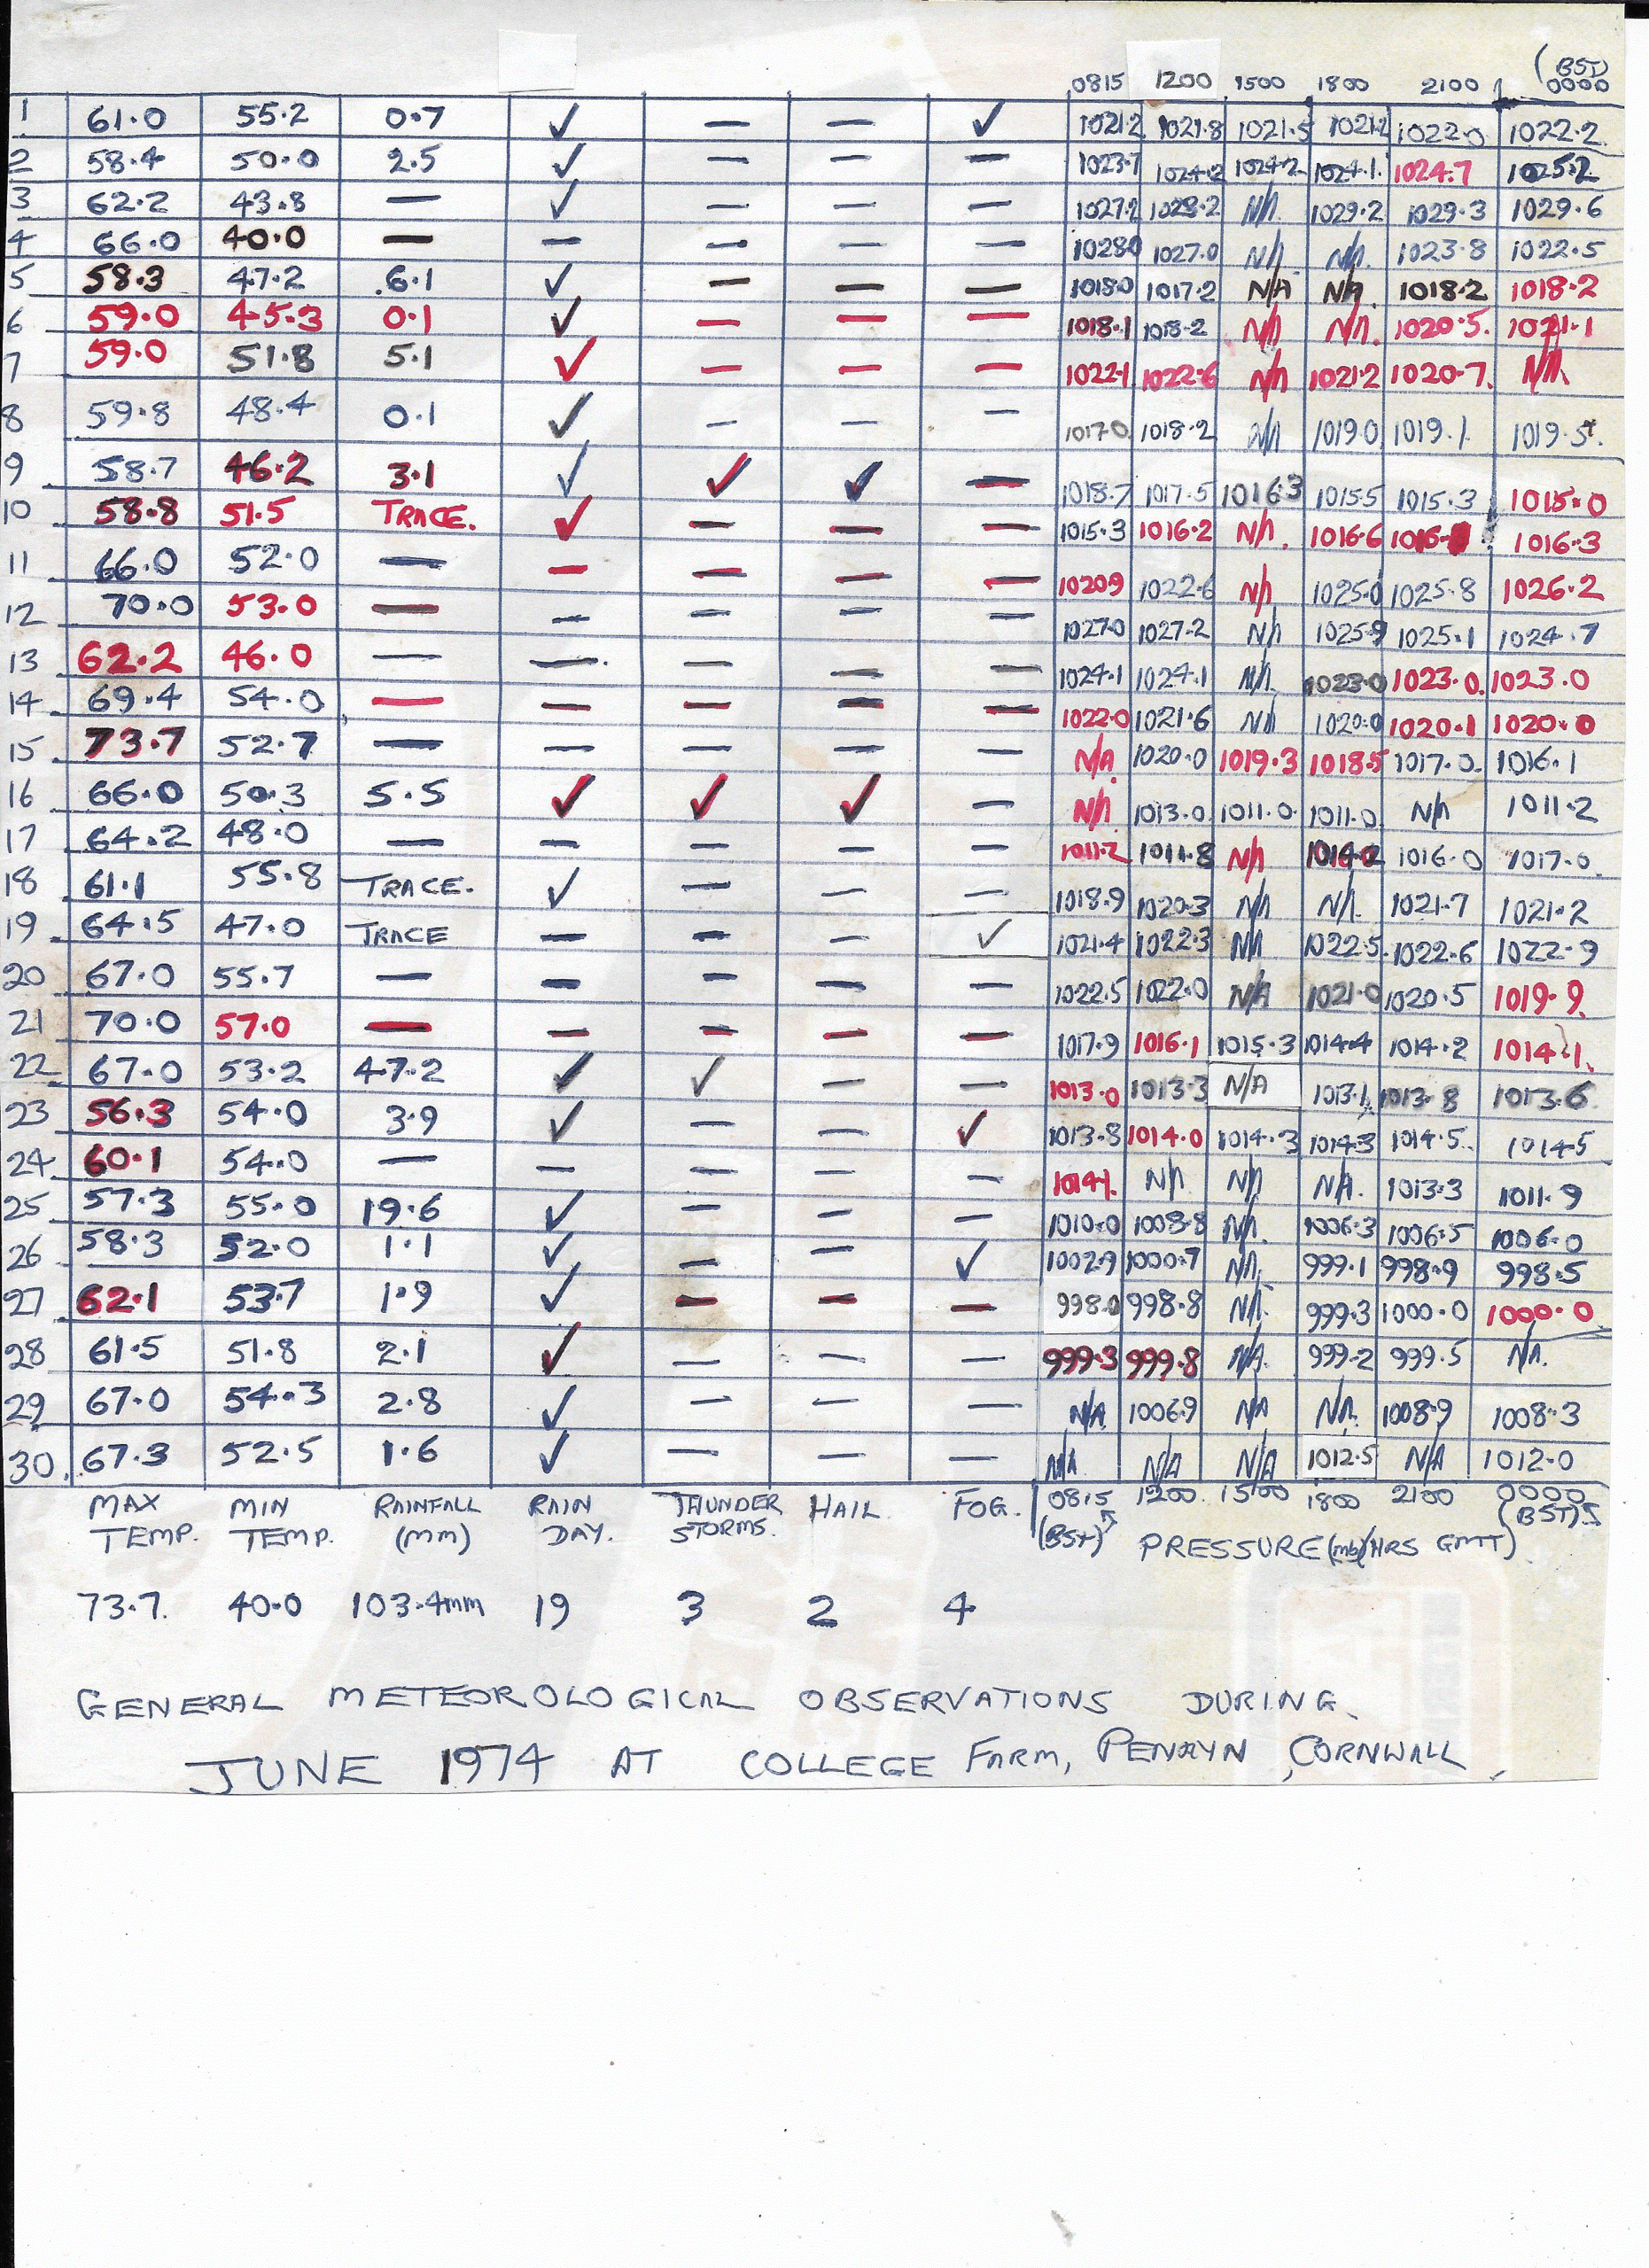 (BST)
0815 1200 1500 1800 2100 0000
1 61.0 55.2 0.7 ✓ — — ✓ 1021.2 1021.8 1021.5 1021.2 1022.0 1022.2
2 58.4 50.0 2.5 ✓ — — — 1023.7 1024.2 1024.2 1024.1 1024.7 1025.2
3 62.2 43.8 — ✓ — — — 1027.2 1028.2 N/A 1029.2 1029.3 1029.6
4 66.0 40.0 — — — — — 1028.0 1027.0 N/A N/A 1023.8 1022.5
5 58.3 47.2 6.1 ✓ — — — 1018.0 1017.2 N/A N/A 1018.2 1018.2
6 59.0 45.3 0.1 ✓ — — — 1018.1 1018.2 N/A N/A 1020.5 1021.1
7 59.0 51.8 5.1 ✓ — — — 1022.1 1022.6 N/A 1021.2 1020.7 N/A
8 59.8 48.4 0.1 ✓ — — — 1017.0 1018.2 N/A 1019.0 1019.1 1019.5
9 58.7 46.2 3.1 ✓ ✓ ✓ — 1018.7 1017.5 1016.3 1015.5 1015.3 1015.0
10 58.8 51.5 TRACE. ✓ — — — 1015.3 1016.2 N/A 1016.6 1016.3
11 66.0 52.0 — — — — — 1020.9 1022.6 N/A 1025.0 1025.8 1026.2
12 70.0 53.0 — — — — — 1027.0 1027.2 N/A 1025.9 1025.1 1024.7
13 62.2 46.0 — — — — — 1024.1 1024.1 N/A 1023.0 1023.0 1023.0
14 69.4 54.0 — — — — — 1022.0 1021.6 N/A 1020.0 1020.1 1020.0
15 73.7 52.7 — — — — — N/A 1020.0 1019.3 1018.5 1017.0 1016.1
16 66.0 50.3 5.5 ✓ ✓ ✓ — N/A 1013.0 1011.0 1011.0 N/A 1011.2
17 64.2 48.0 — — — — — 1011.2 1011.8 N/A 1016.0 1017.0
18 61.1 55.8 TRACE. ✓ — — — 1018.9 1020.3 N/A N/A 1021.7 1021.2
19 64.5 47.0 TRACE — — — ✓ 1021.4 1022.3 NA 1022.5 1022.6 1022.9
20 67.0 55.7 — — — — — 1022.5 1022.0 N/A 1021.0 1020.5 1019.9
21 70.0 57.0 — — — — — 1017.9 1016.1 1015.3 1014.4 1014.2 1014.1
22 67.0 53.2 47.2 ✓ ✓ — — 1013.0 1013.3 N/A 1013.1 1013.8 1013.6
23 56.3 54.0 3.9 ✓ — — ✓ 1013.8 1014.0 1014.3 1014.3 1014.5 1014.5
24 60.1 54.0 — — — — — 1014.1 N/A N/A N/A 1013.3 1011.9
25 57.3 55.0 19.6 ✓ — — — 1010.0 1008.8 N/A 1006.3 1006.5 1006.0
26 58.3 52.0 1.1 ✓ — — ✓ 1002.9 1000.7 NA 999.1 998.9 998.5
27 62.1 53.7 1.9 ✓ — — — 998.0 998.8 NA 999.3 1000.0 1000.0
28 61.5 51.8 2.1 ✓ — — — 999.3 999.8 N/A 999.2 999.5 NA
29 67.0 54.3 2.8 ✓ — — — N/A 1006.9 N/A N/A 1008.9 1008.3
30 67.3 52.5 1.6 ✓ — — — N/A N/A N/A 1012.5 N/A 1012.0
MAX MIN RAINFALL RAIN THUNDER HAIL. FOG. 0815 1200 1500 1800 2100 0000
TEMP. TEMP. (MM) DAY. STORMS. (BST) PRESSURE (mb) (HRS GMT) (BST)
73.7. 40.0 103.4mm 19 3 2 4
GENERAL METEOROLOGICAL OBSERVATIONS DURING
JUNE 1974 AT COLLEGE FARM, PENRYN, CORNWALL